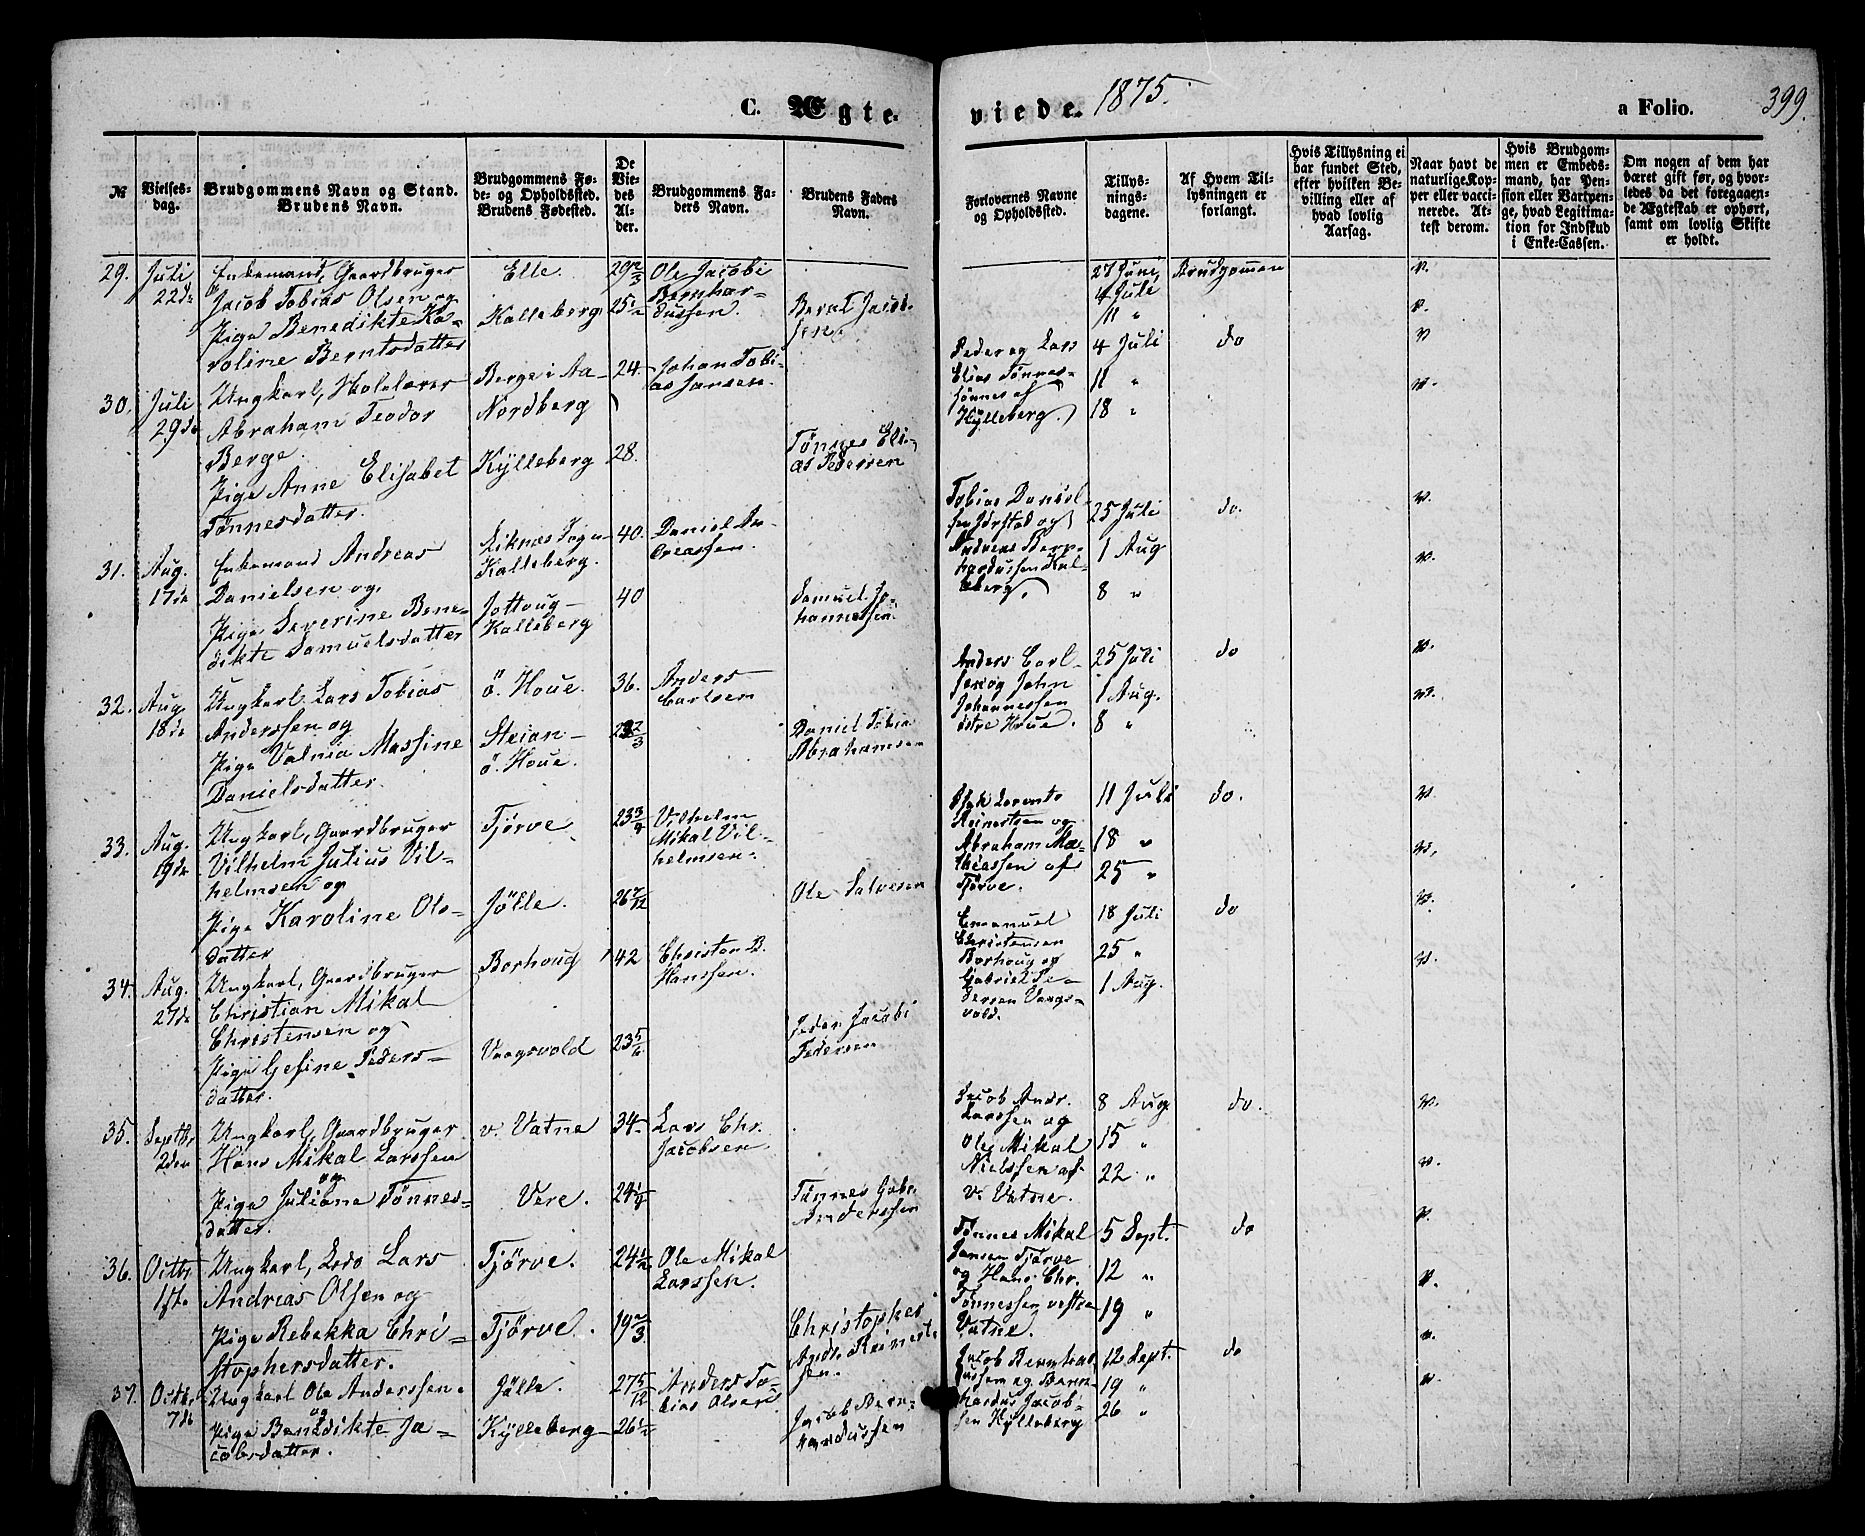 C. Ægte
viede. 1875.
a Folio. 399.
№
Vielses-
dag.
Brudgommens Navn og Stand.
Brudens Navn.
Brudgommens Fø-
de- og Opholdssted.
Brudens Fødested.
De
Vie-
des
Al-
der.
Brudgommens Fa-
ders Navn.
Brudens Faders
Navn.
Forlovernes Navne
og Opholdssted.
Tillys-
nings-
dagene.
Af Hvem Til-
lysningen er
forlangt.
Hvis Tillysning ei
har fundet Sted,
efter hvilken Be-
villing eller af
hvad lovlig
Aarsag.
Naar havt de
naturlige Kop-
per eller vacci-
nerede. At-
test derom.
Hvis Brudgom-
men er Embeds-
mand, har Pen-
sion eller Vartpen-
ge, hvad Legitima-
tion for Indskud
i Enke-Cassen.
Om nogen af dem har
været gift før, og hvor-
ledes da det foregaaen-
de Ægteskab er ophørt,
samt om lovlig Skifte
er holdt.
29.
Juli
22de
Enkemand, Gaardbruger
Jacob Tobias Olsen og
Pige Benedikte Ka-
roline Berntsdatter
Elle.
Kalleberg
29 2/3
25 1/2
Ole Jacobi
Bernhar-
dussen.
Bernt Jacob-
sen.
27 Juni,
4 Juli
11 "
Brudgommen
v.
v.
30.
Juli
29de
Ungkarl, Skolelærer
Abraham Teodor
Berge.
Pige Anne Elisabet
Tønnesdatter.
Berge i Aa-
Nordberg
Kÿlleberg
24.
28.
Johan Tobi-
as Jansen.
Tønnes Eli-
as Pedersen
Peder og Lars
Elias Tønnes-
sønnes af
Kÿlleberg.
4 Juli
11 "
18 "
do
v
v.
31.
Aug.
17de
Enkemand Andreas
Danielsen og
Pige Severine Bene-
dikte Samuelsdatter
Liknes Sogn
Kalleberg.
Jottoug-
Kalleberg
40.
40
Daniel An-
dreassen.
Samuel Jo-
hannessen.
Tobias Daniel-
sen Jørstad og
Andreas Bern-
hardussen Kal-
leberg.
25 Juli
1 Aug
8 "
do.
v.
v.
32.
Aug.
18de
Ungkarl Lars Tobias
Anderssen og
Pige Valnia Massine
Danielsdatter.
ö. Houe.
Steian-
ö. Houe.
36.
2/3
Anders
Carlsen
Daniel Tobias
Abrahamsen
Anders Carl-
sen og John
Johannessen
østre Houe.
25 Juli
1 Aug.
8 "
do
v.
v.
33.
Aug.
19de
Ungkarl, Gaardbruger
Vilhelm Julius Vil-
helmsen og
Pige Karoline Ols-
datter
Tjörve
Jölle.
23 3/4
26 7/12
Vilhelm
Mikal Vil-
helmsen.
Ole Salvesen
Lorents
Reinertsen og
Abraham Ma-
thiassen af
Tjörve.
11 Juli
18 "
25 "
do.
v.
v.
34.
Aug.
27de
Ungkarl, Gaardbruger
Christian Mikal
Christensen og
Pige Gesine Peders-
datter.
Borhoug
Vaagsvold
42
23 5/6
Christen B.
Hanssen.
Peder Jacobi
Pedersen
Emanuel
Christensen
Borhoug og
Gabriel Pe-
dersen Vaags-
vold.
18 Juli
25 "
1 Aug.
do
v.
v.
35.
Septbr
2den
Ungkarl, Gaardbruger
Hans Mikal Larssen
og
Pige Juliane Tønnes-
datter.
v. Vatne
Vere.
34
24 1/4
Lars Chr.
Jacobsen.
Tønnes Gabr.
Anderssen
Jacob Andr.
Larssen og
Ole Mikal
Nielssen af
v. Vatne.
8 Aug.
15 "
22 "
do.
v.
v.
36.
Octbr
1ste
Ungkarl, Lars
Andreas Olsen og
Pige Rebekka Chri-
stophersdatter.
Tjörve.
Tjörve.
24 1/2
19 2/3
Ole Mikal
Larssen.
Christopher
Andr. Reinert-
sen.
Tønnes Mikal
Jansen Tjörve
og Hans Chr.
Tønnessen vestre
Vatne.
5 Sept.
12 "
19 "
do
v.
v.
37.
Octbr
7de
Ungkarl Ole Anderssen
og
Pige Benedikte Ja-
cobsdatter.
Jölle.
Kÿlleberg
27 5/12
26 1/2
Anders To-
bias Olsen
Jacob Bern-
hardussen
Jacob Bernhar-
dussen og Bern-
hardus Jacob-
sen Kÿlleberg
12 Sept.
19 "
26 "
do
v.
v.